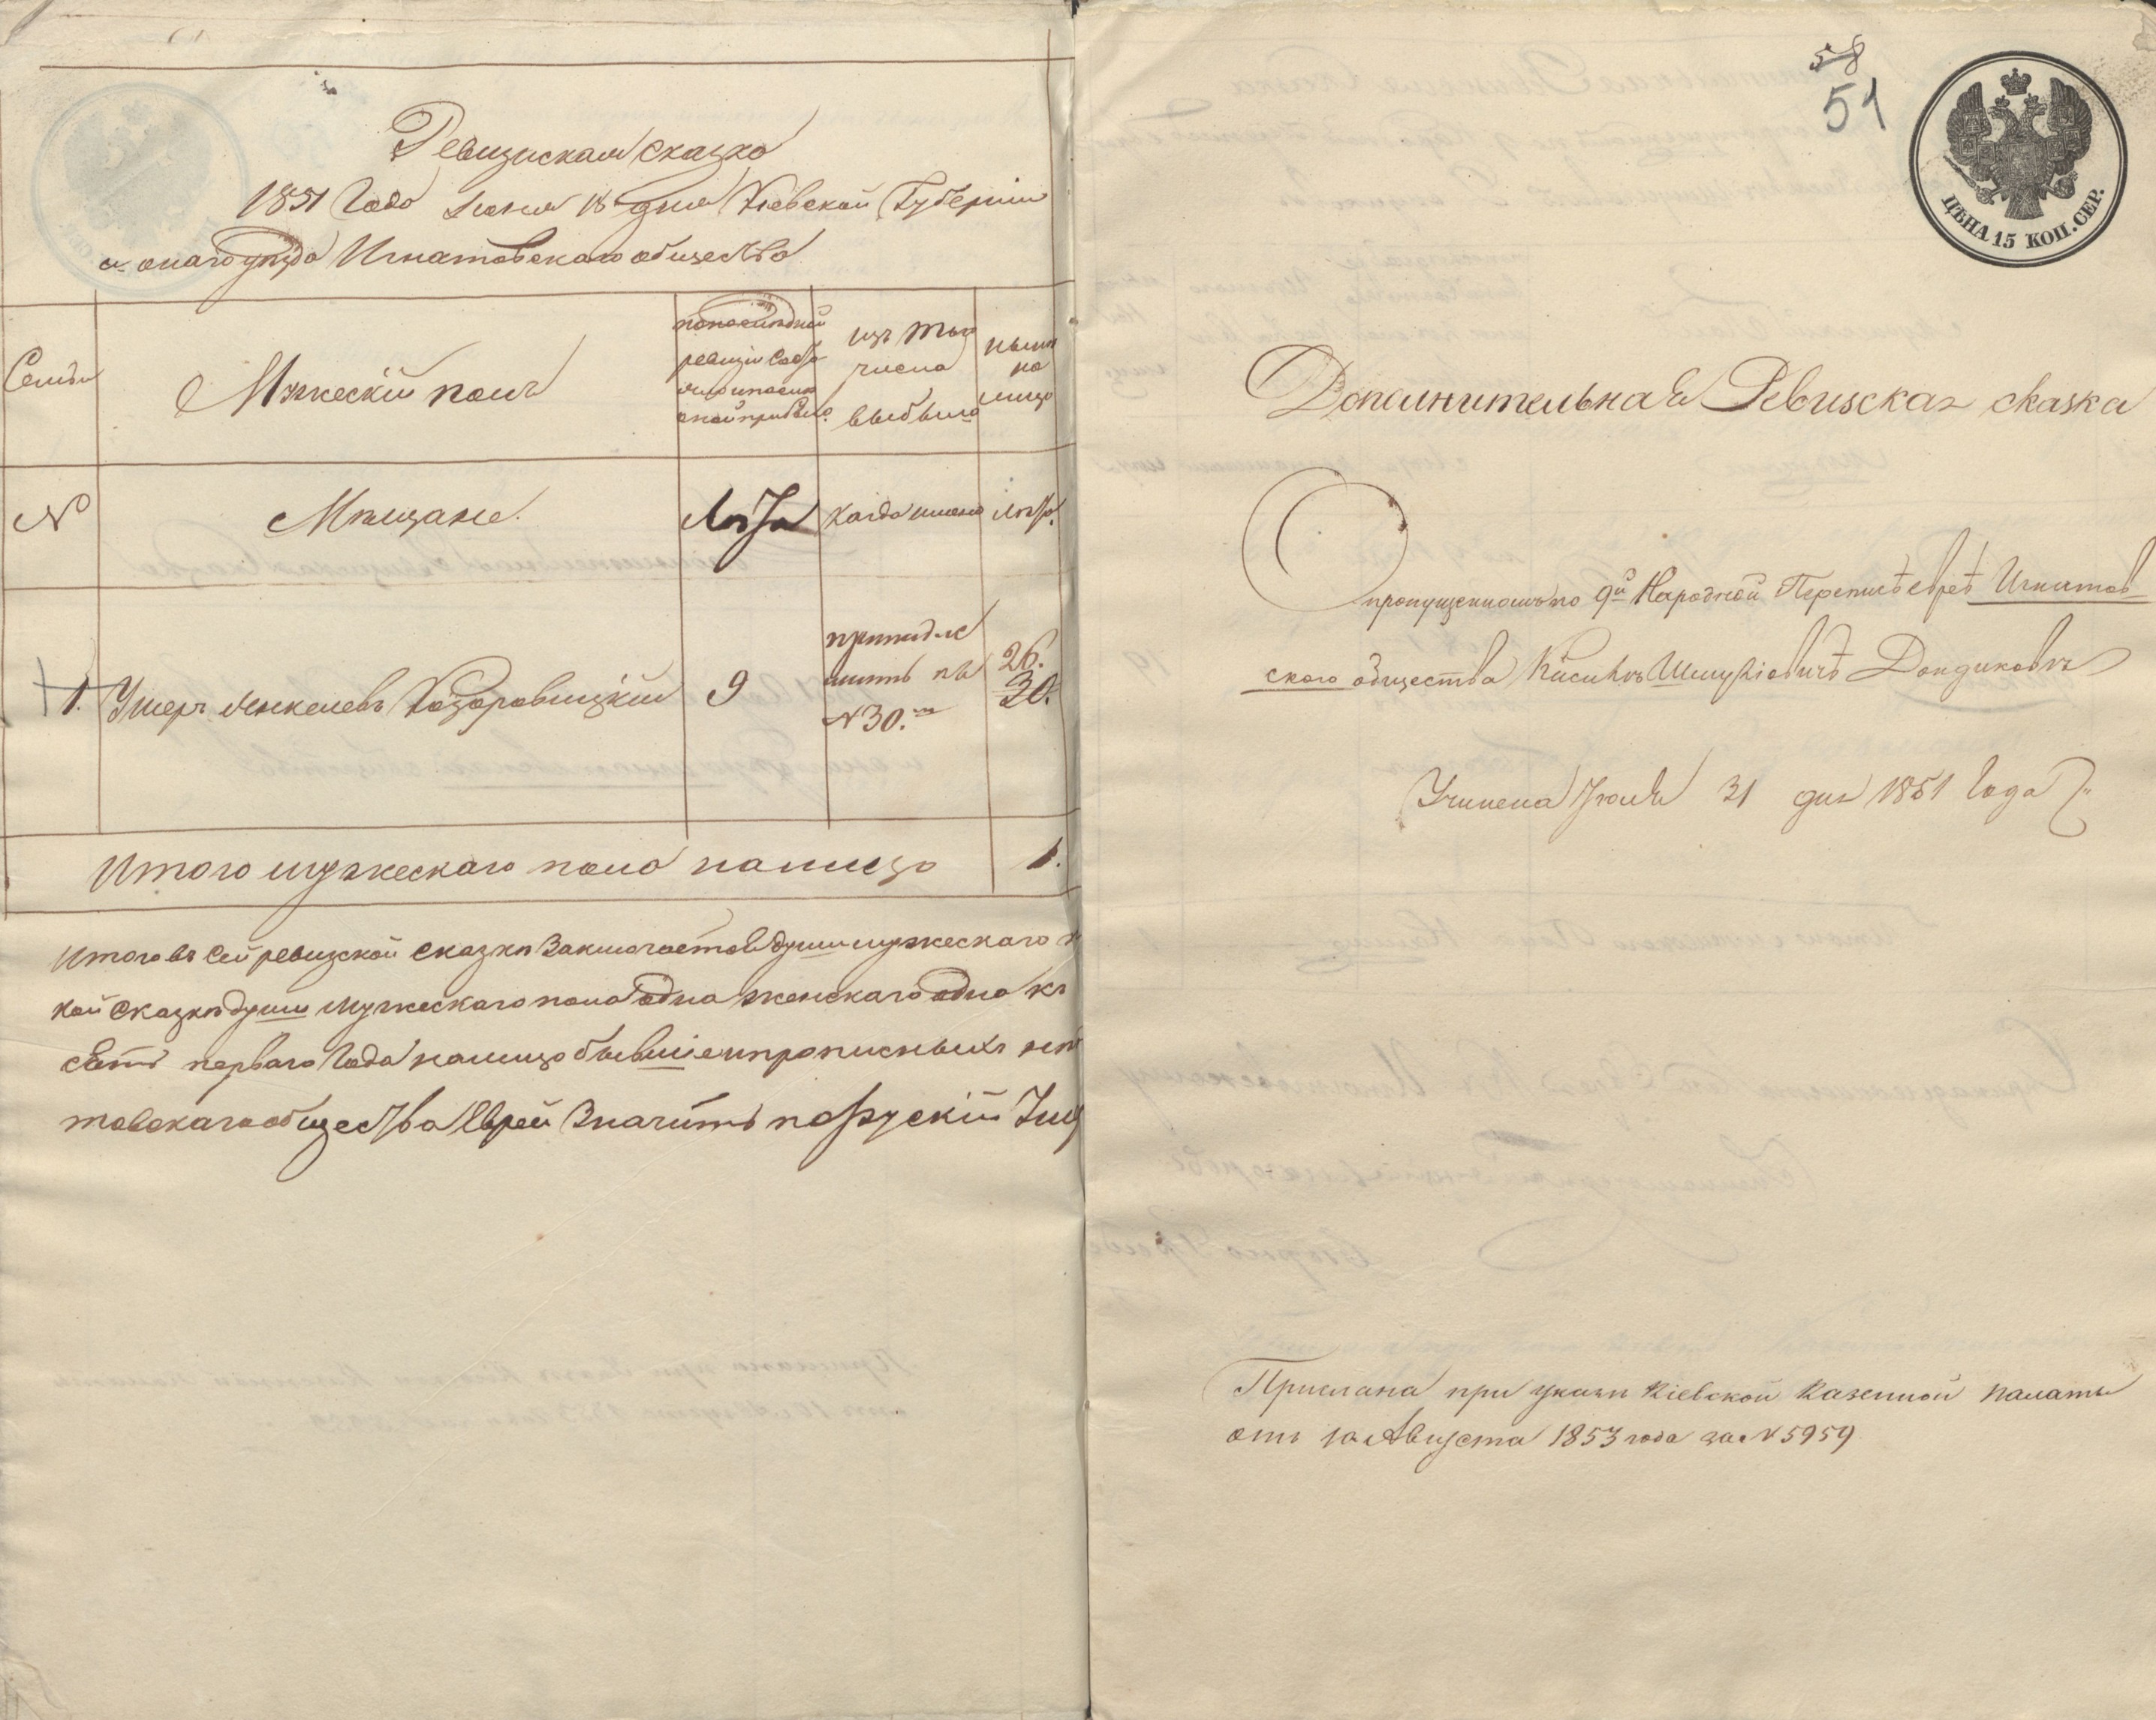 Ревизская сказка
1851 Года Июня 18 дня Кіевской Губерніи
и онаго уезда Игнатовскаго общества
Семьи
Мужескій полъ
по последней
ревизіи состо
яло и после
оной прибыло.
изъ того
числа
выбыло
ныне
на
лицо
№
Мещане.
Лета
когда именно
Лета.
1.
Ушеръ Янкелевъ Ходоровицкій
9
принадле
житъ къ
№ 30.
26.
30.
Итого мужескаго пола налицо
1.
Итого въ сей ревизской сказке заключается души мужескаго
кой сказке души мужескаго пола одна женскаго одна
сятъ перваго Года налицо бывшіе и прописныхъ
товскаго общества Еврей значитъ по Рускій
58
51
ЦѢНА 15 КОП. СЕР.
Дополнительная Ревизская сказка
О пропущенномъ по 9й Народной Переписѣ еврѣѣ Игнатов
ского общества Шмулiовичѣ Дондиковъ
Учинена Іюля 31 дня 1851 Года
Прислана при указе Кіевской Казенной палаты
отъ 10 Августа 1853 года за № 5959